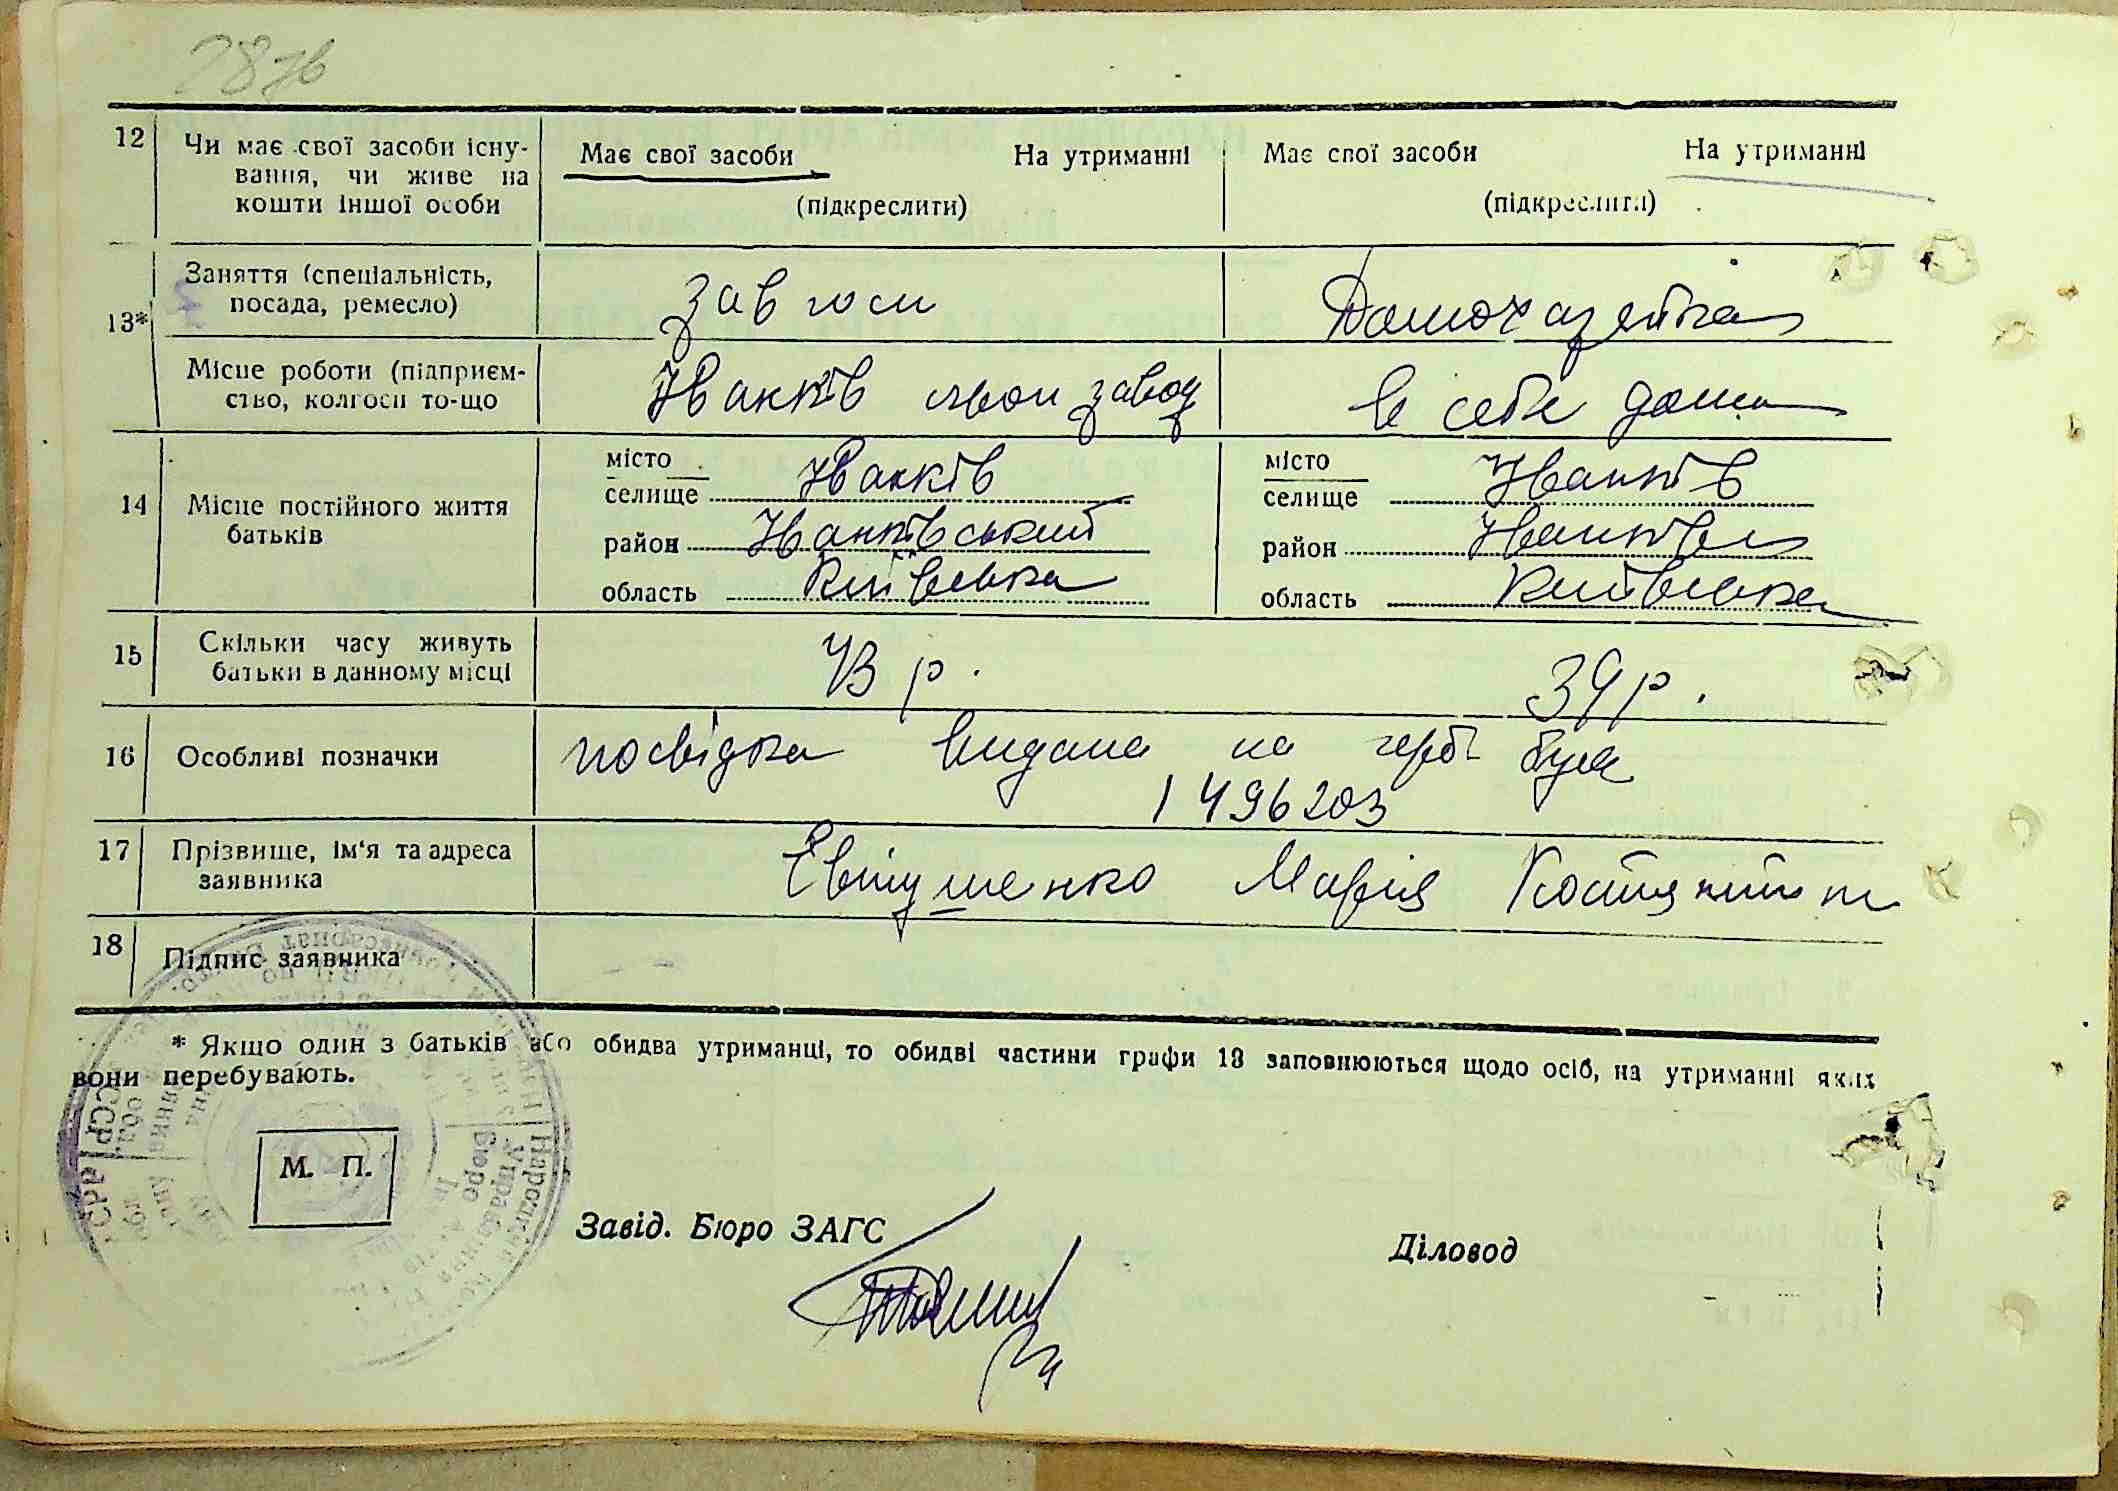 287в
12 Чи має свої засоби існу-
вання, чи живе на
кошти іншої особи
Має свої засоби На утриманні
(підкреслити)
Має свої засоби На утриманні
(підкреслити)
13* Заняття (спеціальність,
посада, ремесло)
Завгосп
Домохазяйка
Місце роботи (підприєм-
ство, колгосп то-що
Іванків льон завод
в себе дома
14 Місце постійного життя
батьків
місто
селище Іванків
район Іванківський
область Київська
місто
селище Іванків
район Іванківськ
область Київська
15 Скільки часу живуть
батьки в данному місці
43 р.
39 р.
16 Особливі позначки
посвідка видана на герб бум
1496203
17 Прізвище, ім'я та адреса
заявника
Євтушенко Марія
18 Підпис заявника
* Якшо один з батьків або обидва утриманці, то обидві частини графи 13 заповнюються щодо осіб, на утриманні яких
вони перебувають.
М. П.
Завід. Бюро ЗАГС
Діловод